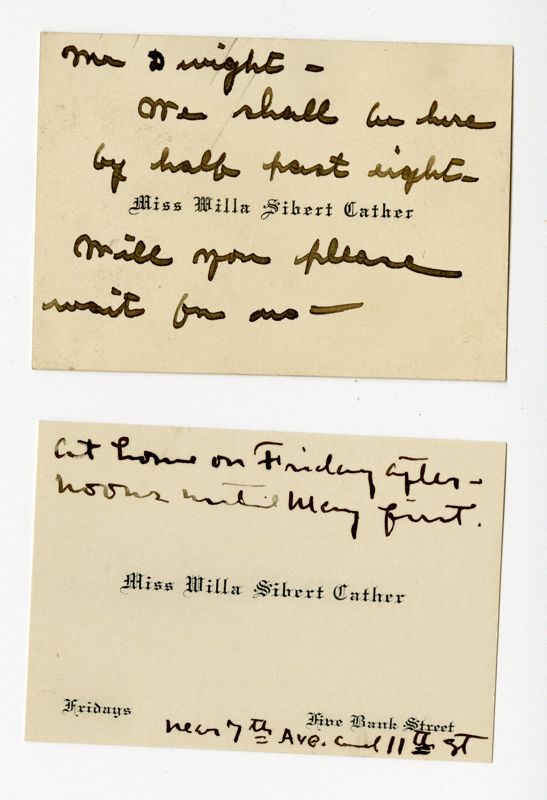 Mr Dwight -
We shall be here
by half past eight -
Miss Willa Sibert Cather
Will you please
wait for us -
At home on Friday after-
noons until May first.
Miss Willa Sibert Cather
Fridays
Five Bank Street
near 7th Ave. and 11th St